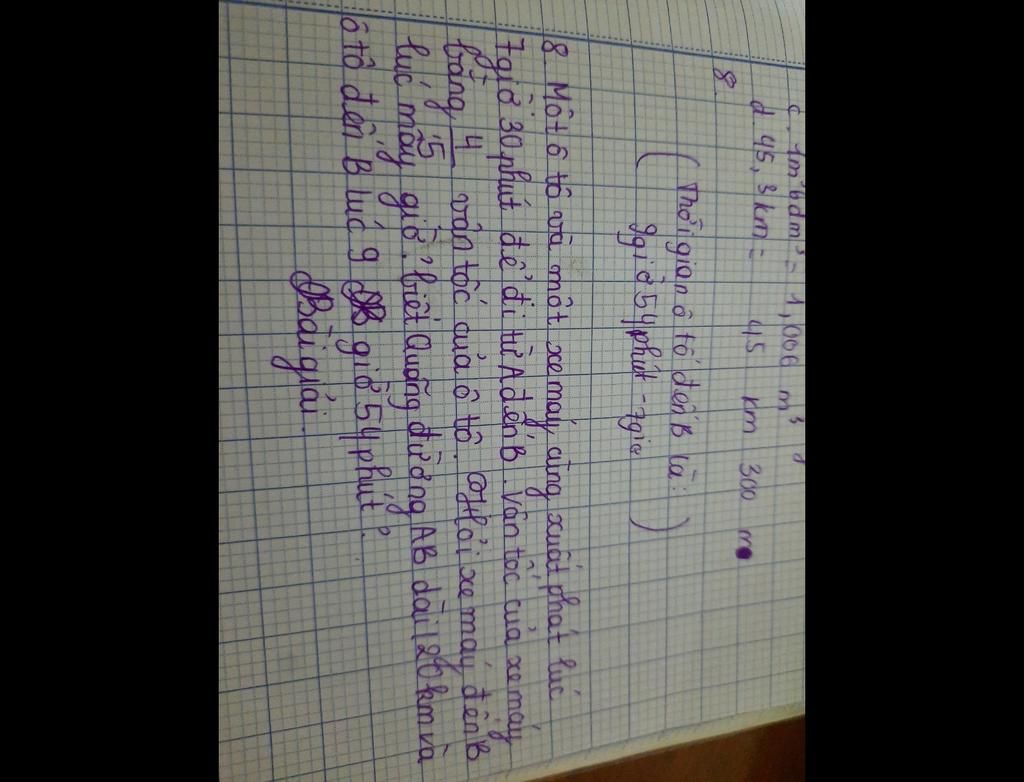 c. 1m³6dm³ = 1,006 m³
d. 45,3km = 45 km 300 m
8.
(Thời gian ô tô đến B là:
9giờ 54phút - 7giờ )
8. Một ô tô và một xe máy cùng xuất phát lúc
7giờ 30phút để đi từ A đến B. Vận tốc của xe máy
bằng 4/5 vận tốc của ô tô. Hỏi xe máy đến B
lúc mấy giờ? biết Quãng đường AB dài 120km và
ô tô đến B lúc 9 giờ 54phút?
Bài giải